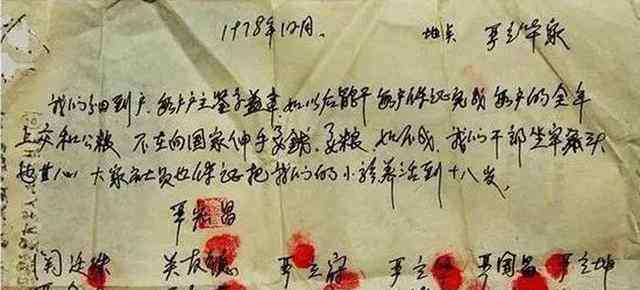 1978年12月. 地点 严立华家
我们分田到户,每户户主签字盖章,如以后能干,每户保证完成每户的全年
上交和公粮,不在向国家伸手要钱、要粮,如不成,我们干部坐牢杀头
也甘心,大家社员也保证把我们的小孩养活到十八岁。
严宏昌
关廷珠 关友德 严立符 严立华 严国昌 严立坤